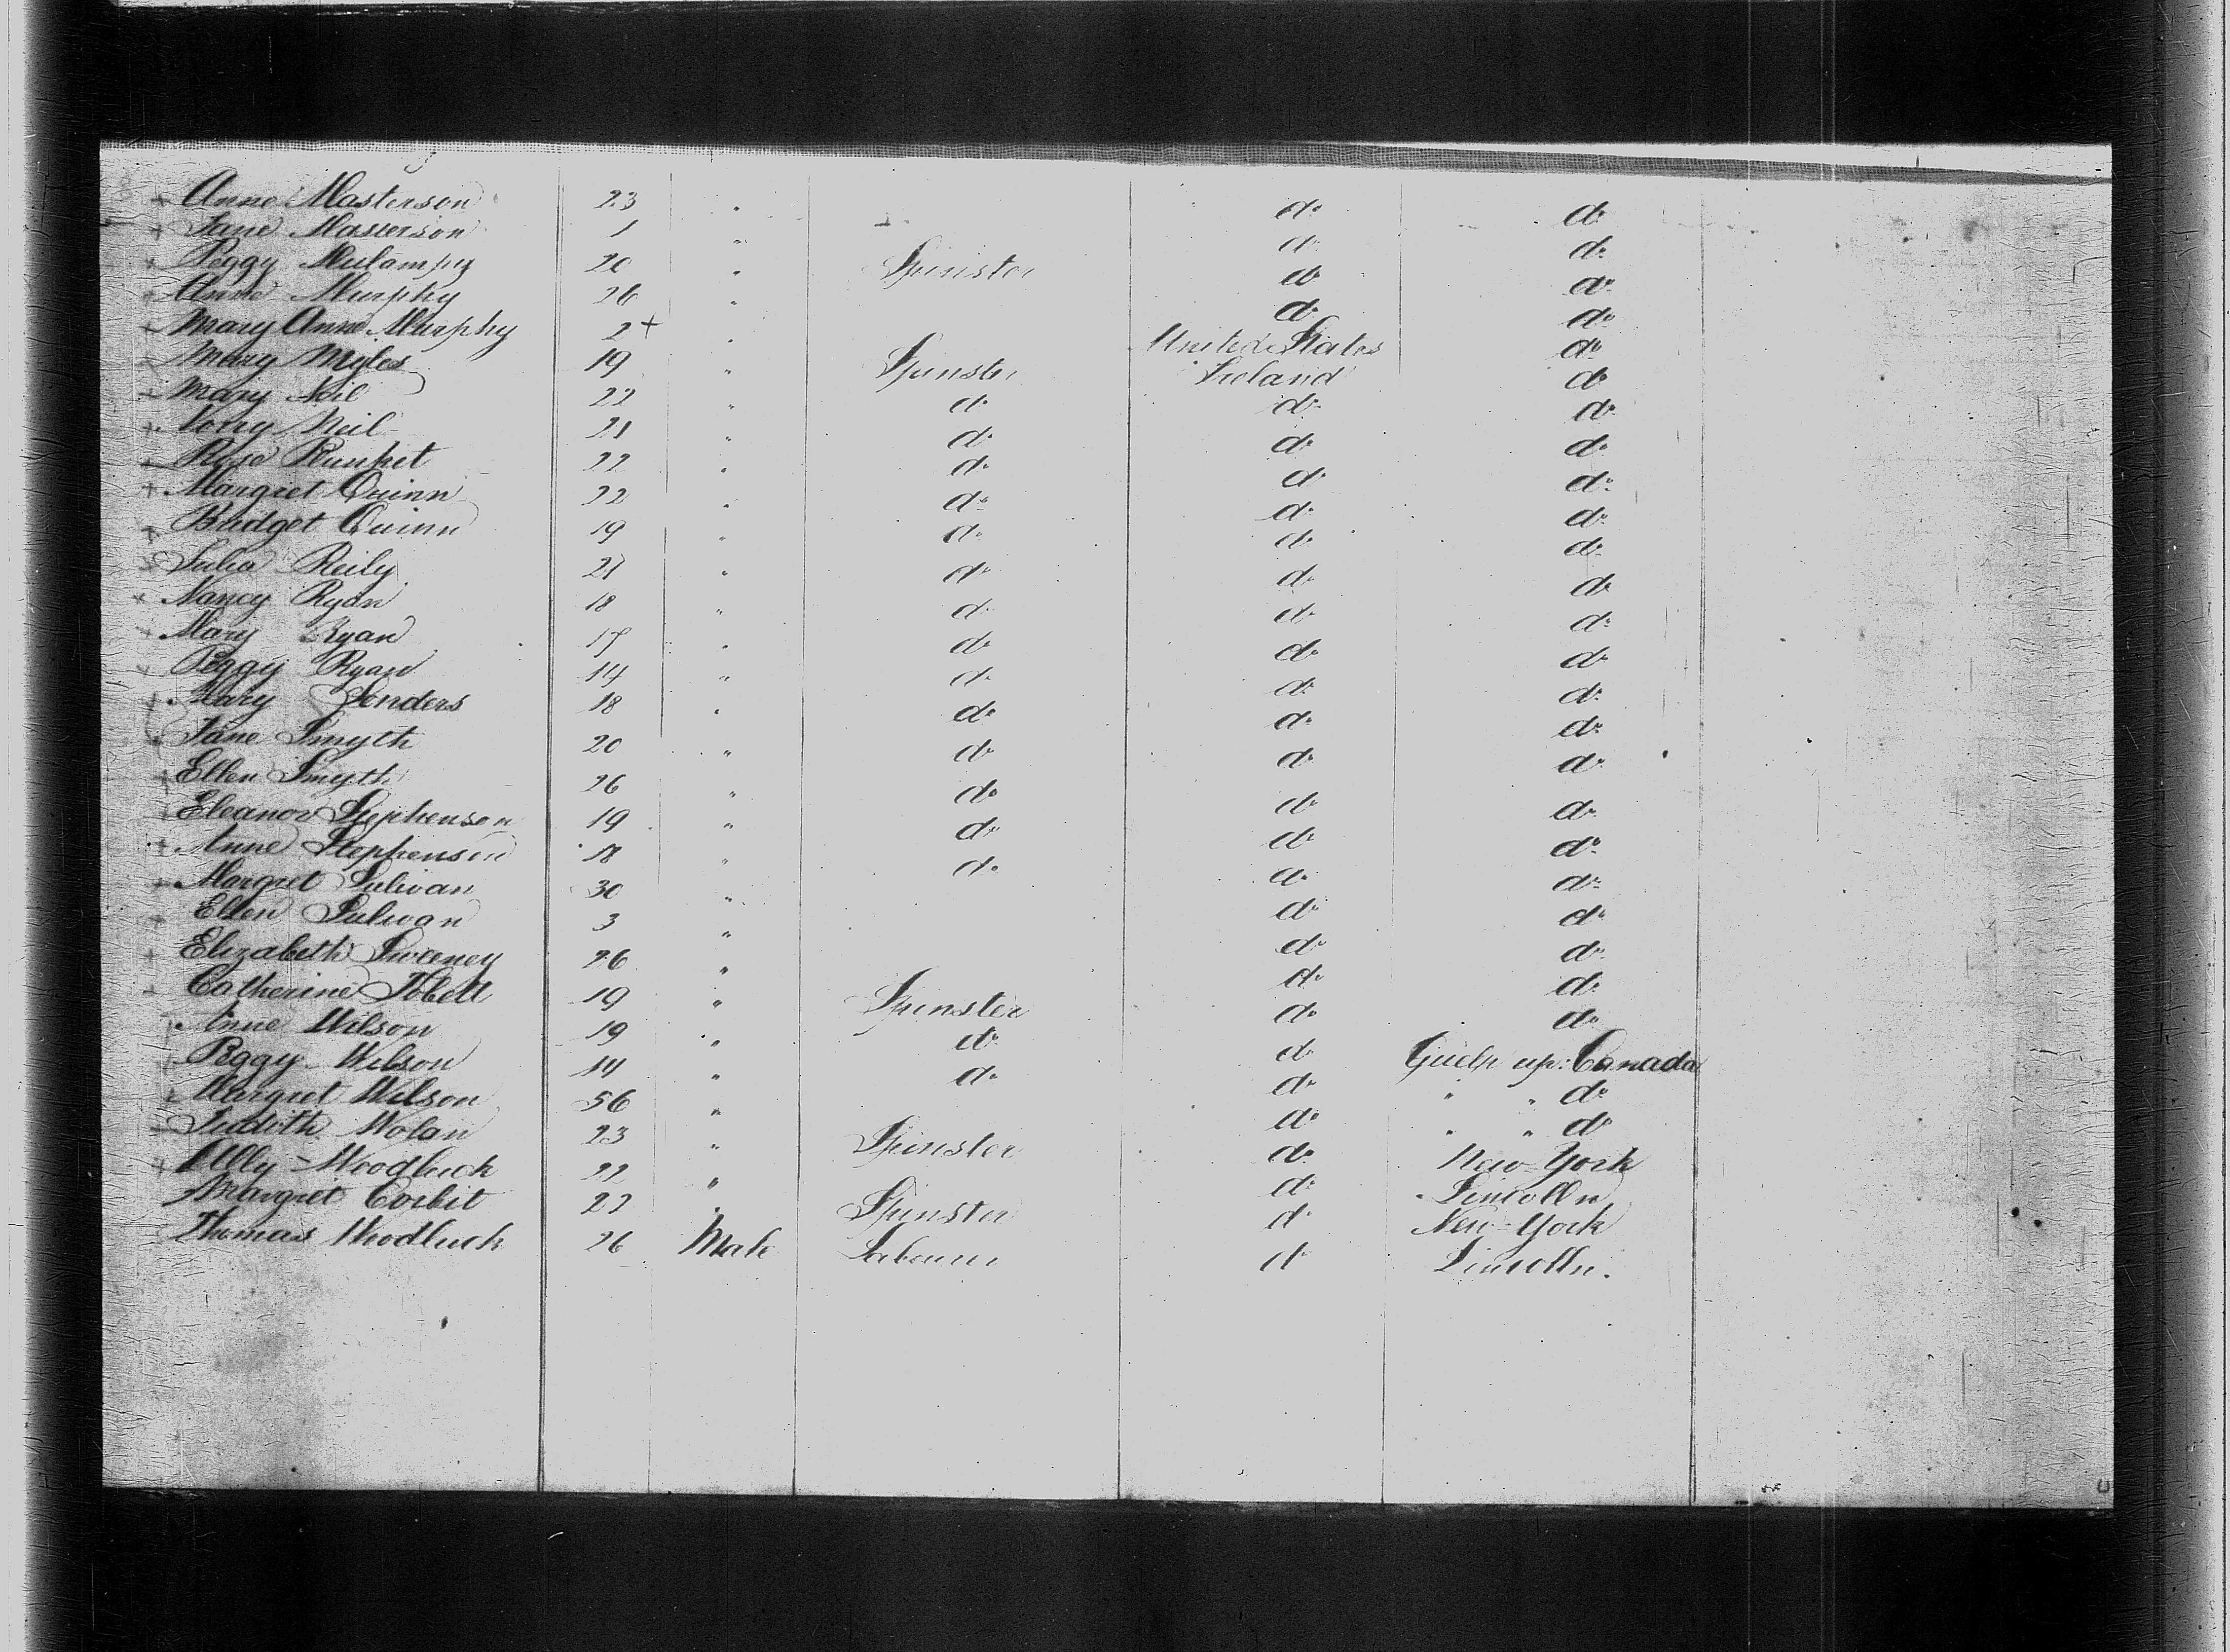 Anne Masterson 23 " do do
Jane Masterson 1 " do do
Peggy Mulampy 20 " Spinster do do
Anne Murphy 26 " do do
Mary Anne Murphy 2+ " United States do
Mary Myles 19 " Spinster Ireland do
Mary Neil 22 " do do do
Neil 21 " do do do
Rose Plunket 22 " do do do
Margret Quinn 22 " do do do
Bridget Quinn 19 " do do do
Julia Reily 21 " do do do
Nancy Ryan 18 " do do do
Mary Ryan 17 " do do do
Peggy Ryan 14 " do do do
Mary Sonders 18 " do do do
Jane Smyth 20 " do do do
Ellen Smyth 26 " do do do
Eleanor Stephenson 19 " do do do
Anne Stephenson 18 " do do do
Margret Sulivan 30 " do do
Ellen Sulivan 3 " do do
Elizabeth Sweeney 26 " do do
Catherine 19 " Spinster do do
Anne Wilson 19 " do do do
Peggy Wilson 14 " do do Guelp up: Canada
Margret Wilson 56 " do " " do
Judith Nolan 23 " Spinster do " " do
Ally Woodluck 22 " do New-York
Margret Corbit 22 " Spinster do Lincolln
Thomas Woodluck 26 Male Labourer do New-York
Lincolln.